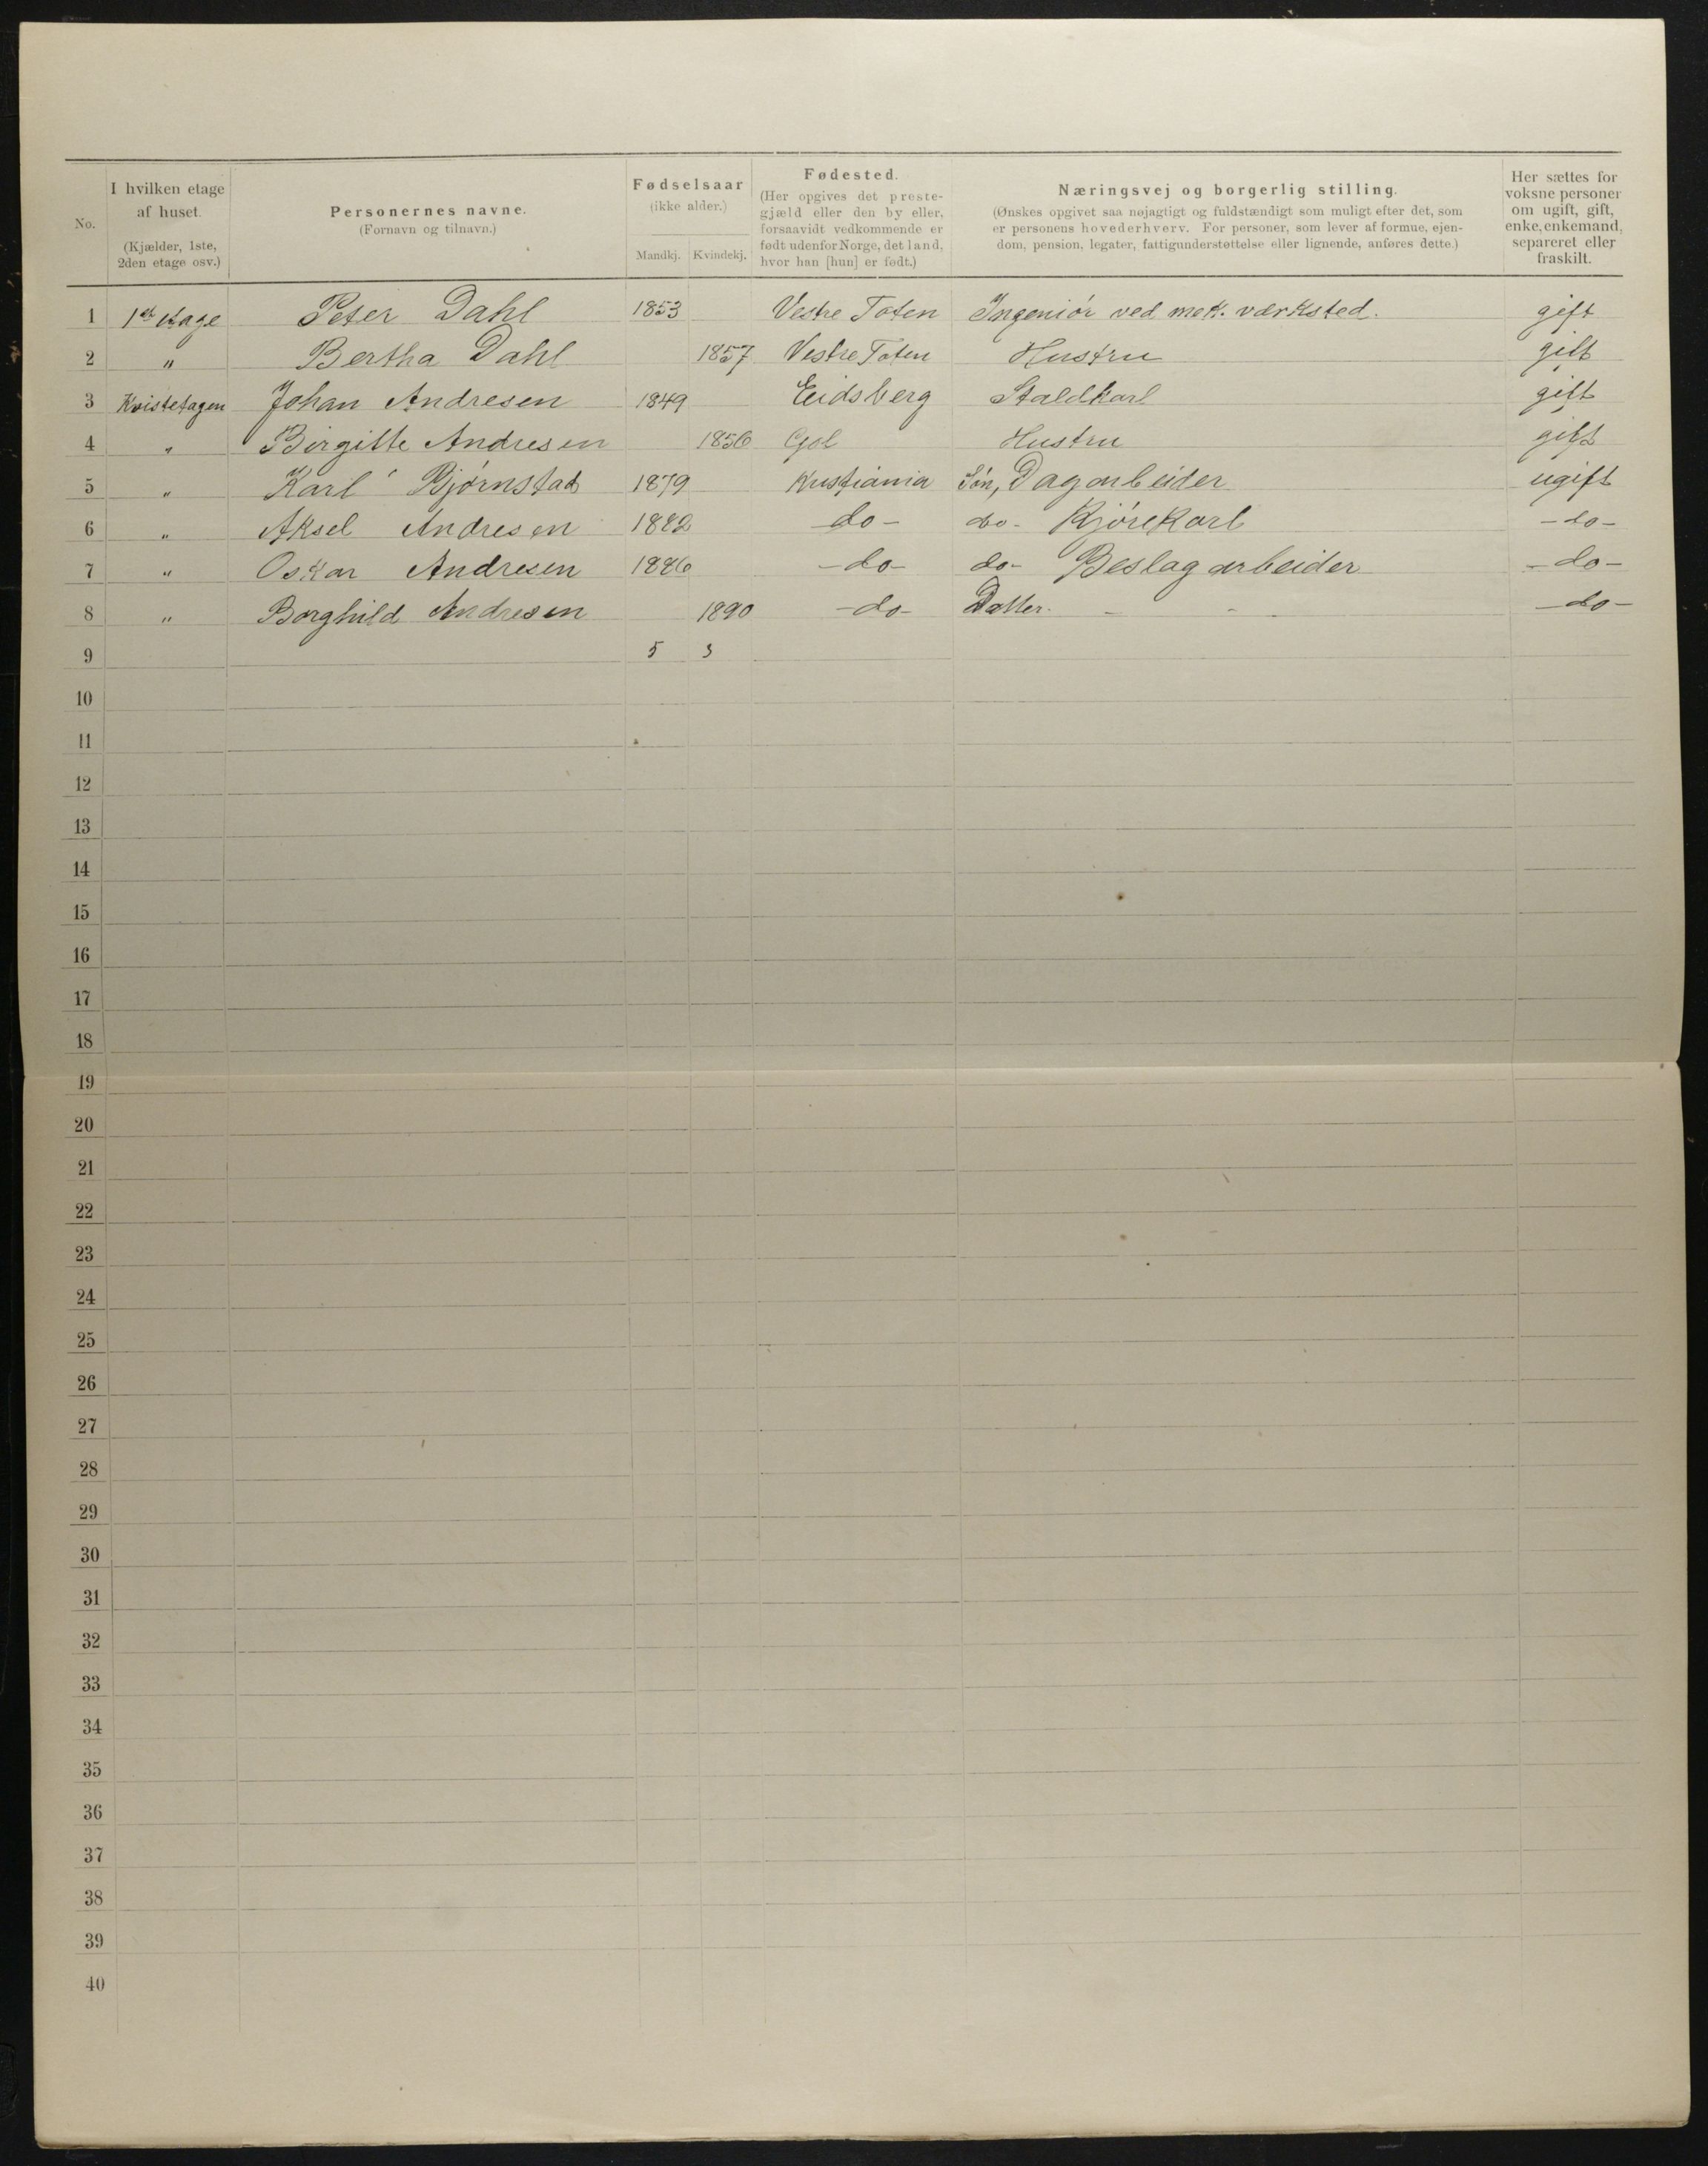 No.
I hvilken etage
af huset.
(Kjælder, 1ste,
2den etage osv.)
Personernes navne.
(Fornavn og tilnavn.)
Fødselsaar
(ikke alder.)
Mandkj. Kvindekj.
Fødested.
(Her opgives det preste-
gjæld eller den by eller,
forsaavidt vedkommende er
født udenfor Norge, det land,
hvor han [hun] er født.)
Næringsvej og borgerlig stilling.
(Ønskes opgivet saa nøjagtigt og fuldstændigt som muligt efter det, som
er personens hovederhverv. For personer, som lever af formue, ejen-
dom, pension, legater, fattigunderstøttelse eller lignende, anføres dette.)
Her sættes for
voksne personer
om ugift, gift,
enke, enkemand,
separeret eller
fraskilt.
1 1st etage Peter Dahl 1853 Vestre Toten Ingeniör ved mek. værksted. gift
2 " Bertha Dahl 1857 Vestre Toten Hustru gift
3 Kvistetagen Johan Andresen 1849 Eidsberg Staldkarl gift
4 " Birgitte Andresen 1856 Gol Hustru gift
5 " Karl Bjørnstad 1879 Kristiania Sön, Dagarbeider ugift
6 " Aksel Andresen 1882 -do- do- Kjörekarl -do-
7 " Oskar Andresen 1886 -do- do- Beslagarbeider -do-
8 " Borghild Andresen 1890 -do- Datter. - - -do-
9 5 3
10
11
12
13
14
15
16
17
18
19
20
21
22
23
24
25
26
27
28
29
30
31
32
33
34
35
36
37
38
39
40